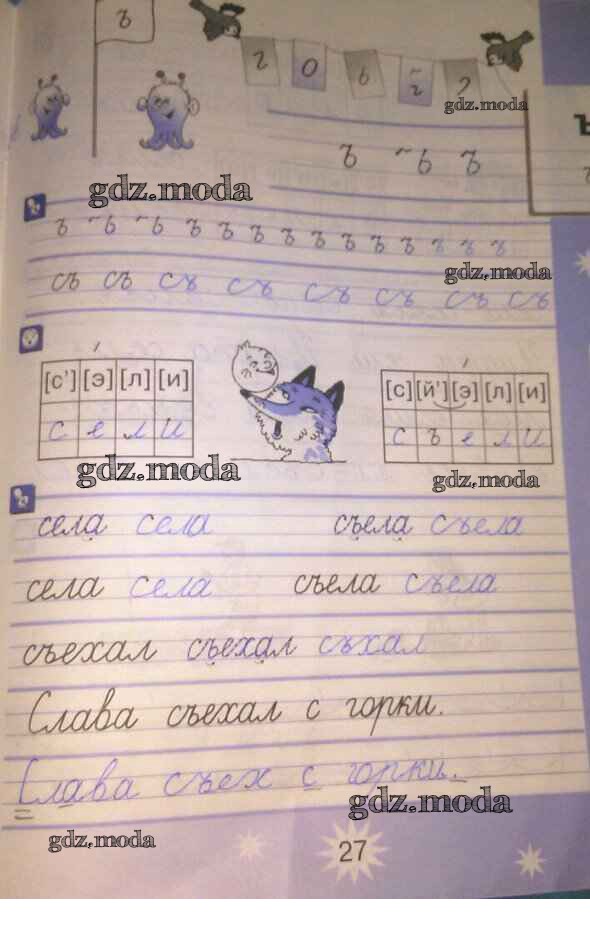 ъ
г о ь г ?
gdz.moda
ъ
ъ ь ъ
gdz.moda
ъ ь ь ъ ъ ъ ъ ъ ъ ъ ъ ъ ъ ъ ъ
gdz.moda
съ съ съ съ съ съ съ съ
[с'] [э] [л] [и]
с е л и
[с] [й'] [э] [л] [и]
с ъ е л и
gdz.moda
gdz.moda
села села съела съела
села села съела съела
съехал съехал съхал
Слава съехал с горки.
Слава съех с горки.
gdz.moda
gdz.moda
27